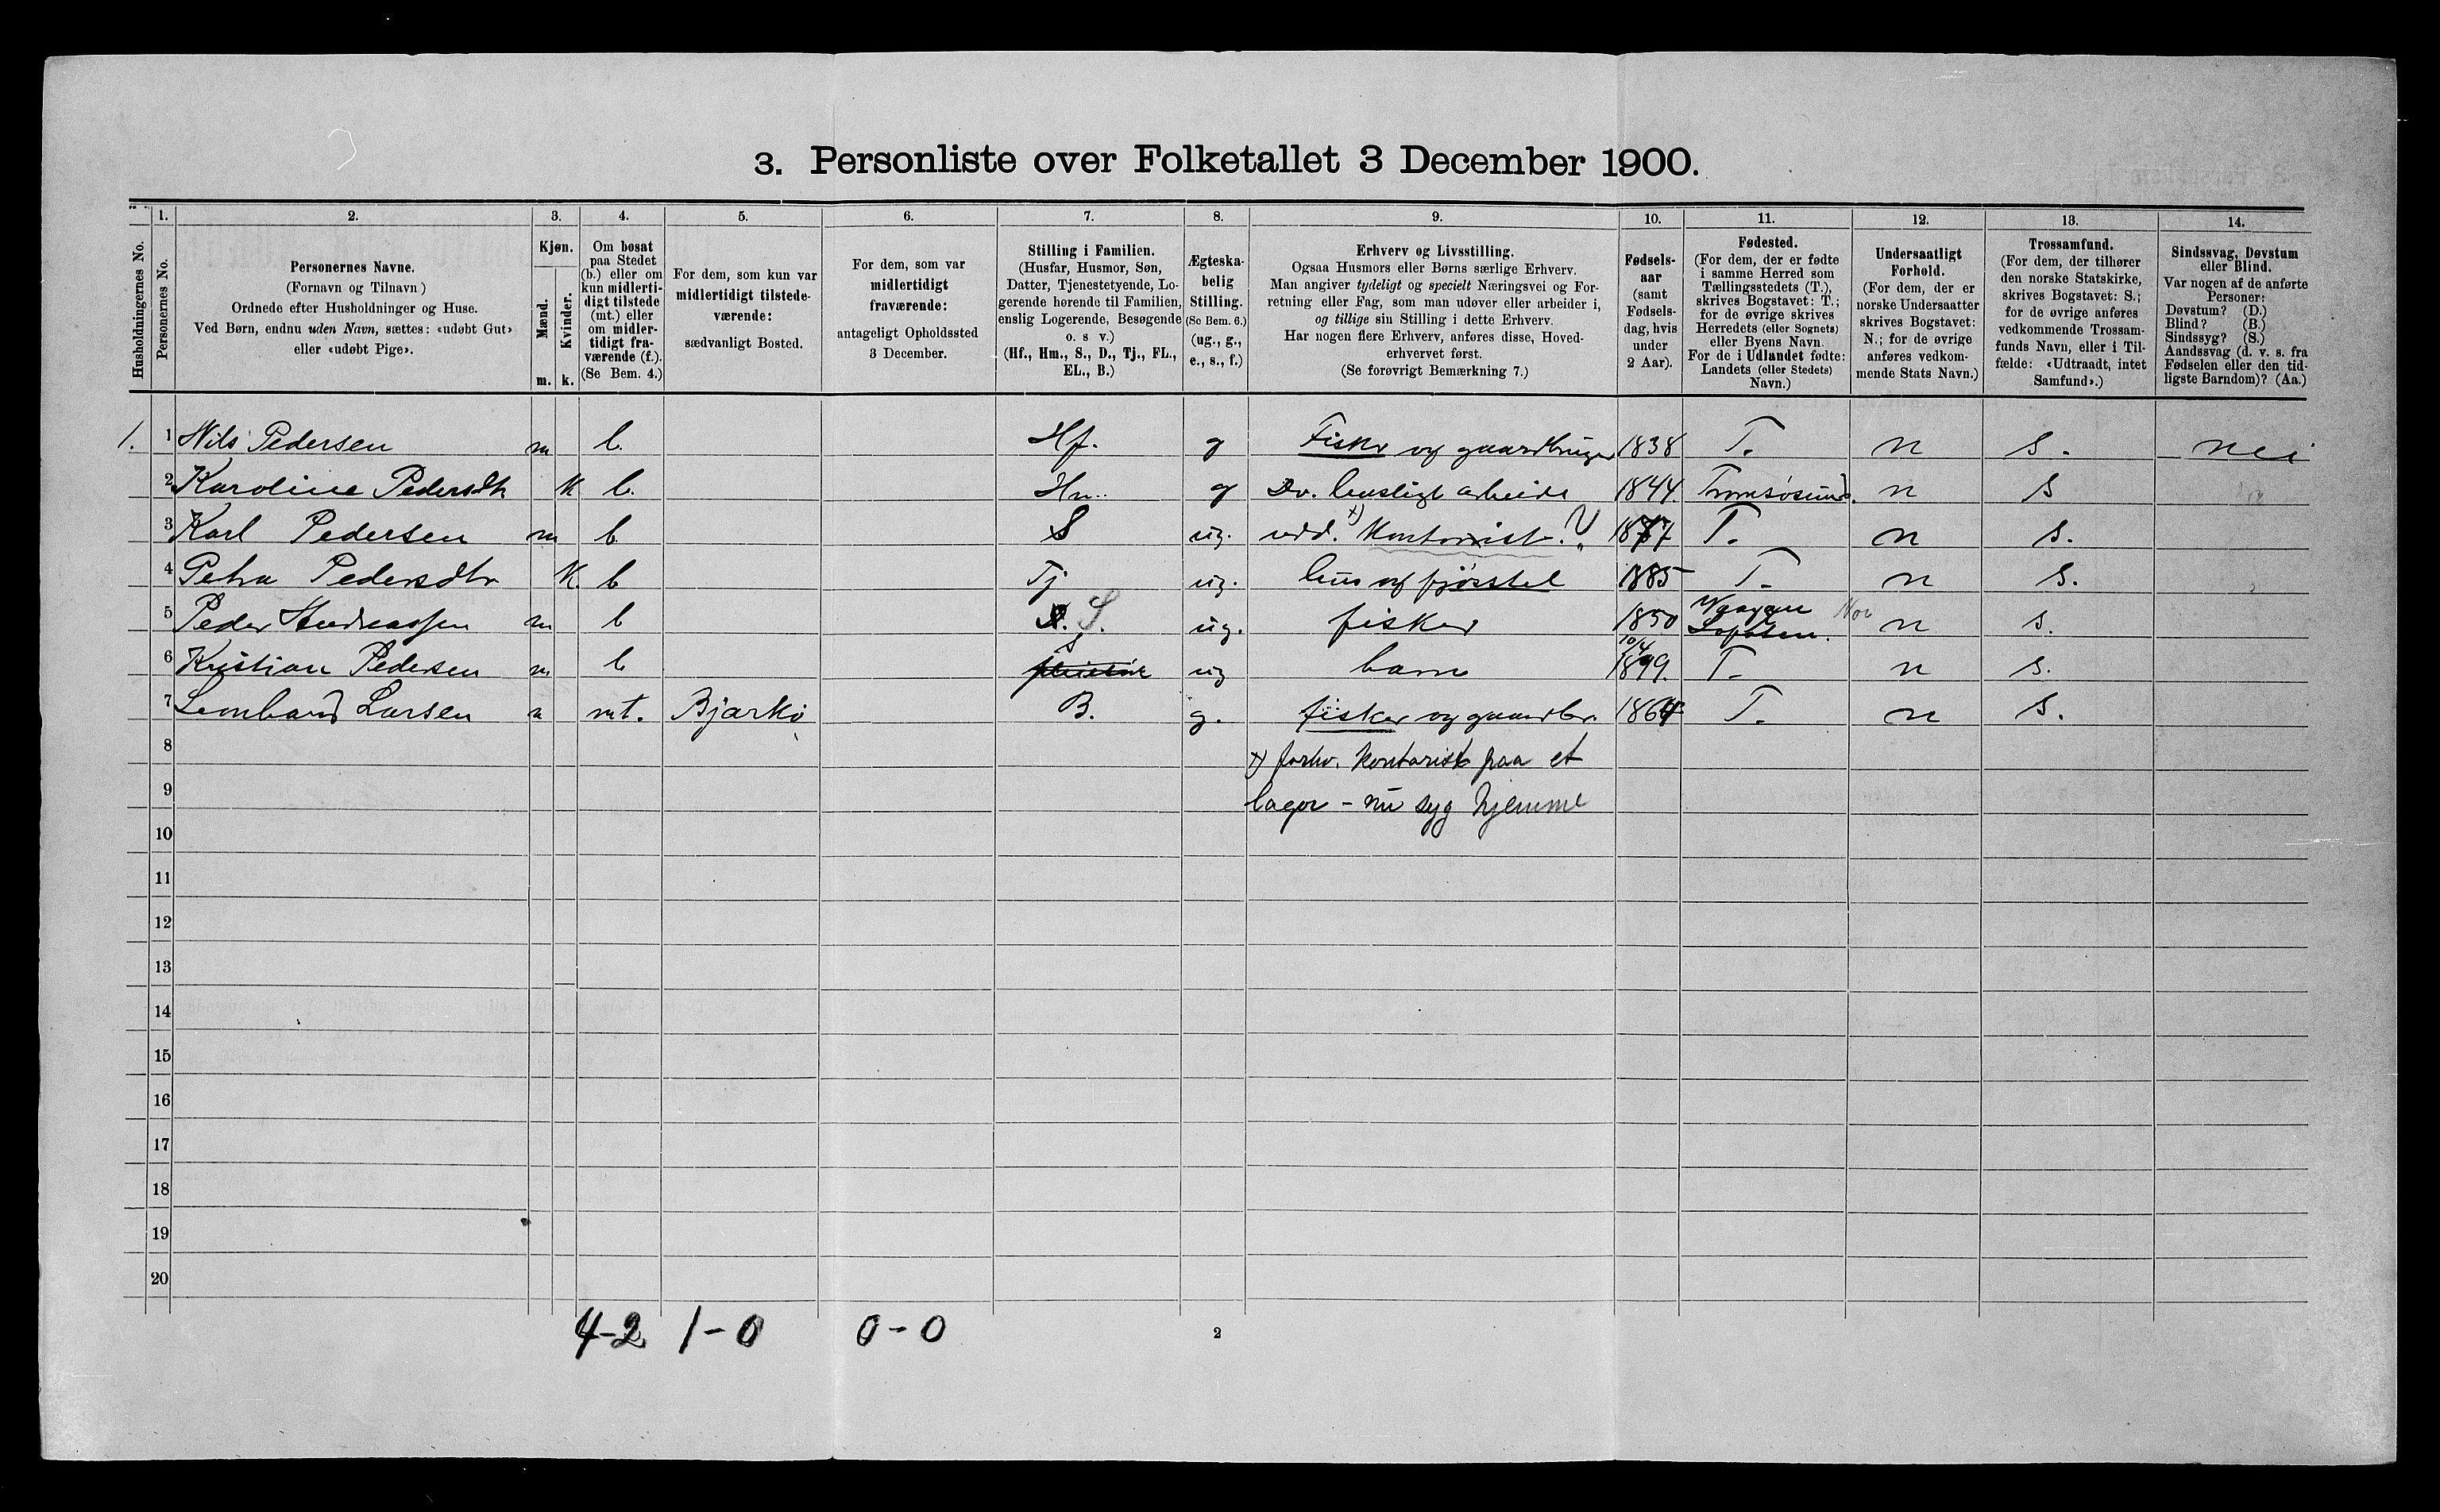 3. Personliste over Folketallet 3 December 1900.
Husholdningernes No.
1.
Personernes No.
2.
Personernes Navne.
(Fornavn og Tilnavn)
Ordnede efter Husholdninger og Huse.
Ved Børn, endnu uden Navn, sættes: «udøbt Gut»
eller «udøbt Pige».
3.
Kjøn.
Mænd.
Kvinder.
m. k.
4.
Om bosat
paa Stedet
(b.) eller om
kun midlerti-
digt tilstede
(mt.) eller
om midler-
tidigt fra-
værende (f.).
(Se Bem. 4.)
5.
For dem, som kun var
midlertidigt tilstede-
værende:
sædvanligt Bosted.
6.
For dem, som var
midlertidigt
fraværende:
antageligt Opholdssted
3 December.
7.
Stilling i Familien.
(Husfar, Husmor, Søn,
Datter, Tjenestetyende, Lo-
gerende hørende til Familien,
enslig Logerende, Besøgende
o. s v.)
(Hf., Hm., S., D., Tj., FL.,
EL., B.)
8.
Ægteska-
belig
Stilling.
(Se Bem. 6.)
(ug., g.,
e., s., f.)
9.
Erhverv og Livsstilling.
Ogsaa Husmors eller Børns særlige Erhverv.
Man angiver tydeligt og specielt Næringsvei og For-
retning eller Fag, som man udøver eller arbeider i,
og tillige sin Stilling i dette Erhverv.
Har nogen flere Erhverv, anføres disse, Hoved-
erhvervet først.
(Se forøvrigt Bemærkning 7.)
10.
Fødsels-
aar
(samt
Fødsels-
dag, hvis
under
2 Aar).
11.
Fødested.
(For dem, der er fødte
i samme Herred som
Tællingsstedets (T.),
skrives Bogstavet: T.;
for de øvrige skrives
Herredets (eller Sognets)
eller Byens Navn.
For de i Udlandet fødte:
Landets (eller Stedets)
Navn.)
12.
Undersaatligt
Forhold.
(For dem, der er
norske Undersaatter
skrives Bogstavet:
N.; for de øvrige
anføres vedkom-
mende Stats Navn.)
13.
Trossamfund.
(For dem, der tilhører
den norske Statskirke,
skrives Bogstavet: S.;
for de øvrige anføres
vedkommende Trossam-
funds Navn, eller i Til-
fælde: «Udtraadt, intet
Samfund».)
14.
Sindssvag, Døvstum
eller Blind.
Var nogen af de anførte
Personer:
Døvstum? (D.)
Blind? (B.)
Sindssyg? (S.)
Aandssvag (d. v. s. fra
Fødselen eller den tid-
ligste Barndom)? (Aa.)
1. 1 Nils Pedersen m b. Hf. g Fisker og gaardbruger 1838 T. n S. nei
2 Karoline Pedersdtr K b. Hm. g Dv. husligt arbeide 1844. Tromsøsund. n S
3 Karl Pedersen m b S ug. udd. x) Kontorist. ? 1877 T. n S.
4 Petra Pedersdtr K. b Tj ug. hus og fjøsstel 1885 T. n S.
5 Peder Andreassen m b S. ug. fisker 1850 Vaagan Lofoten. n S.
6 Kristian Pedersen m b S ug barn 10/4 1899. T. n S.
7 Leonhard Larsen m mt. Bjarkø B. g. fisker og gaardbr. 1864 T. n S.
8 x) forhv. kontorist paa et
9 lager - nu syg hjemme
10
11
12
13
14
15
16
17
18
19
20
4-2 1-0 0-0
2